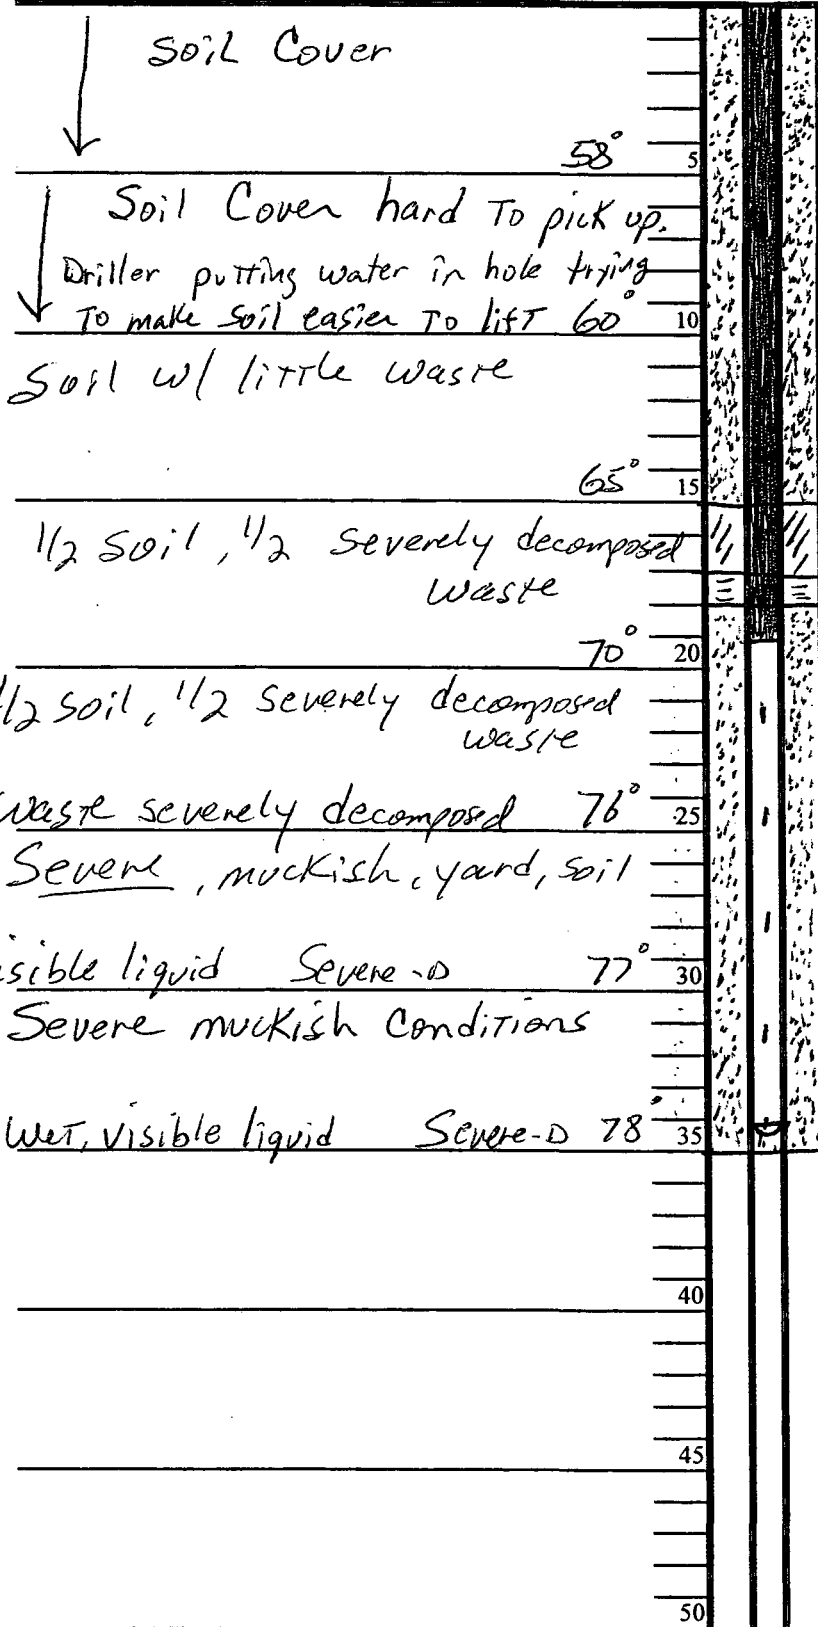 Soil Cover
58° 5
Soil Cover hard To pick up.
Driller putting water in hole trying
To make soil easier To lift 60° 10
Soil w/ little waste
65° 15
1/2 soil, 1/2 severely decomposed
waste
70° 20
1/2 soil, 1/2 severely decomposed
waste
Waste severely decomposed 76° 25
Severe, muckish, yard, soil
isible liquid Severe-D 77° 30
Severe muckish Conditions
Wet, visible liquid Severe-D 78° 35
40
45
50